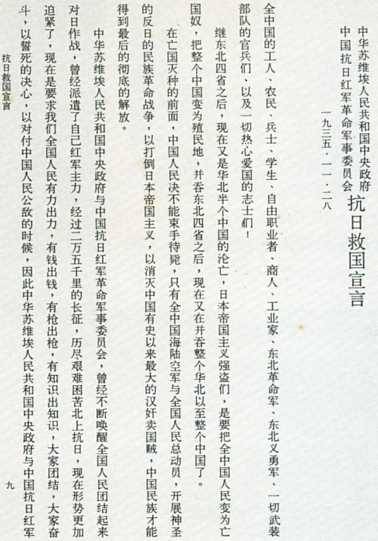 中华苏维埃人民共和国中央政府
中国抗日红军革命军事委员会
抗日救国宣言
一九三五·一一·二八
全中国的工人、农民、兵士、学生、自由职业者、商人、工业家、东北革命军、东北义勇军、一切武装
部队的官兵们、以及一切热心爱国的志士们！
继东北四省之后，现在又是华北半个中国的沦亡，日本帝国主义强盗们，是要把全中国人民变为亡
国奴，把整个中国变为殖民地，并吞东北四省之后，现在又在并吞整个华北以至整个中国了。
在亡国灭种的前面，中国人民决不能束手待毙，只有全中国海陆空军与全国人民总动员，开展神圣
的反日的民族革命战争，以打倒日本帝国主义，以消灭中国有史以来最大的汉奸卖国贼，中国民族才能
得到最后的彻底的解放。
中华苏维埃人民共和国中央政府与中国抗日红军革命军事委员会，曾经不断唤醒全国人民团结起来
对日作战，曾经派遣了自己红军主力，经过二万五千里的长征，历尽艰难困苦北上抗日，现在形势更加
迫紧了，现在是要求我们全国人民有力出力，有钱出钱，有枪出枪，有知识出知识，大家团结，大家奋
斗，以誓死的决心，以对付中国人民公敌的时候，因此中华苏维埃人民共和国中央政府与中国抗日红军
抗日救国宣言
九